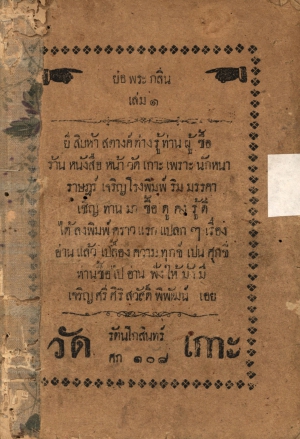 ย่อ พระ กลิ่น
เล่ม ๑
ยี่ สิบห้า สตางค์ ต่าง รู้ ท่าน ผู้ ซื้อ
ร้าน หนังสือ หน้า วัด เกาะ เพราะ นักหนา
ราษฎร์ เจริญ โรงพิมพ์ ริม มรรคา
เชิญ ท่าน มา ซื้อ ดู คง รู้ ดี
ได้ ลงพิมพ์ คราว แรก แปลก ๆ เรื่อง
อ่าน แล้ว เปลื้อง ความ ทุกข์ เปน ศุกข์
ท่าน ซื้อ ไป อ่าน ฟัง ให้ มั่ง มี
เจริญ ศรี ศิริ สวัสดิ์ พิพัฒน์ เอย
วัด รัตนโกสินทร์ เกาะ
ศก ๑๐๘